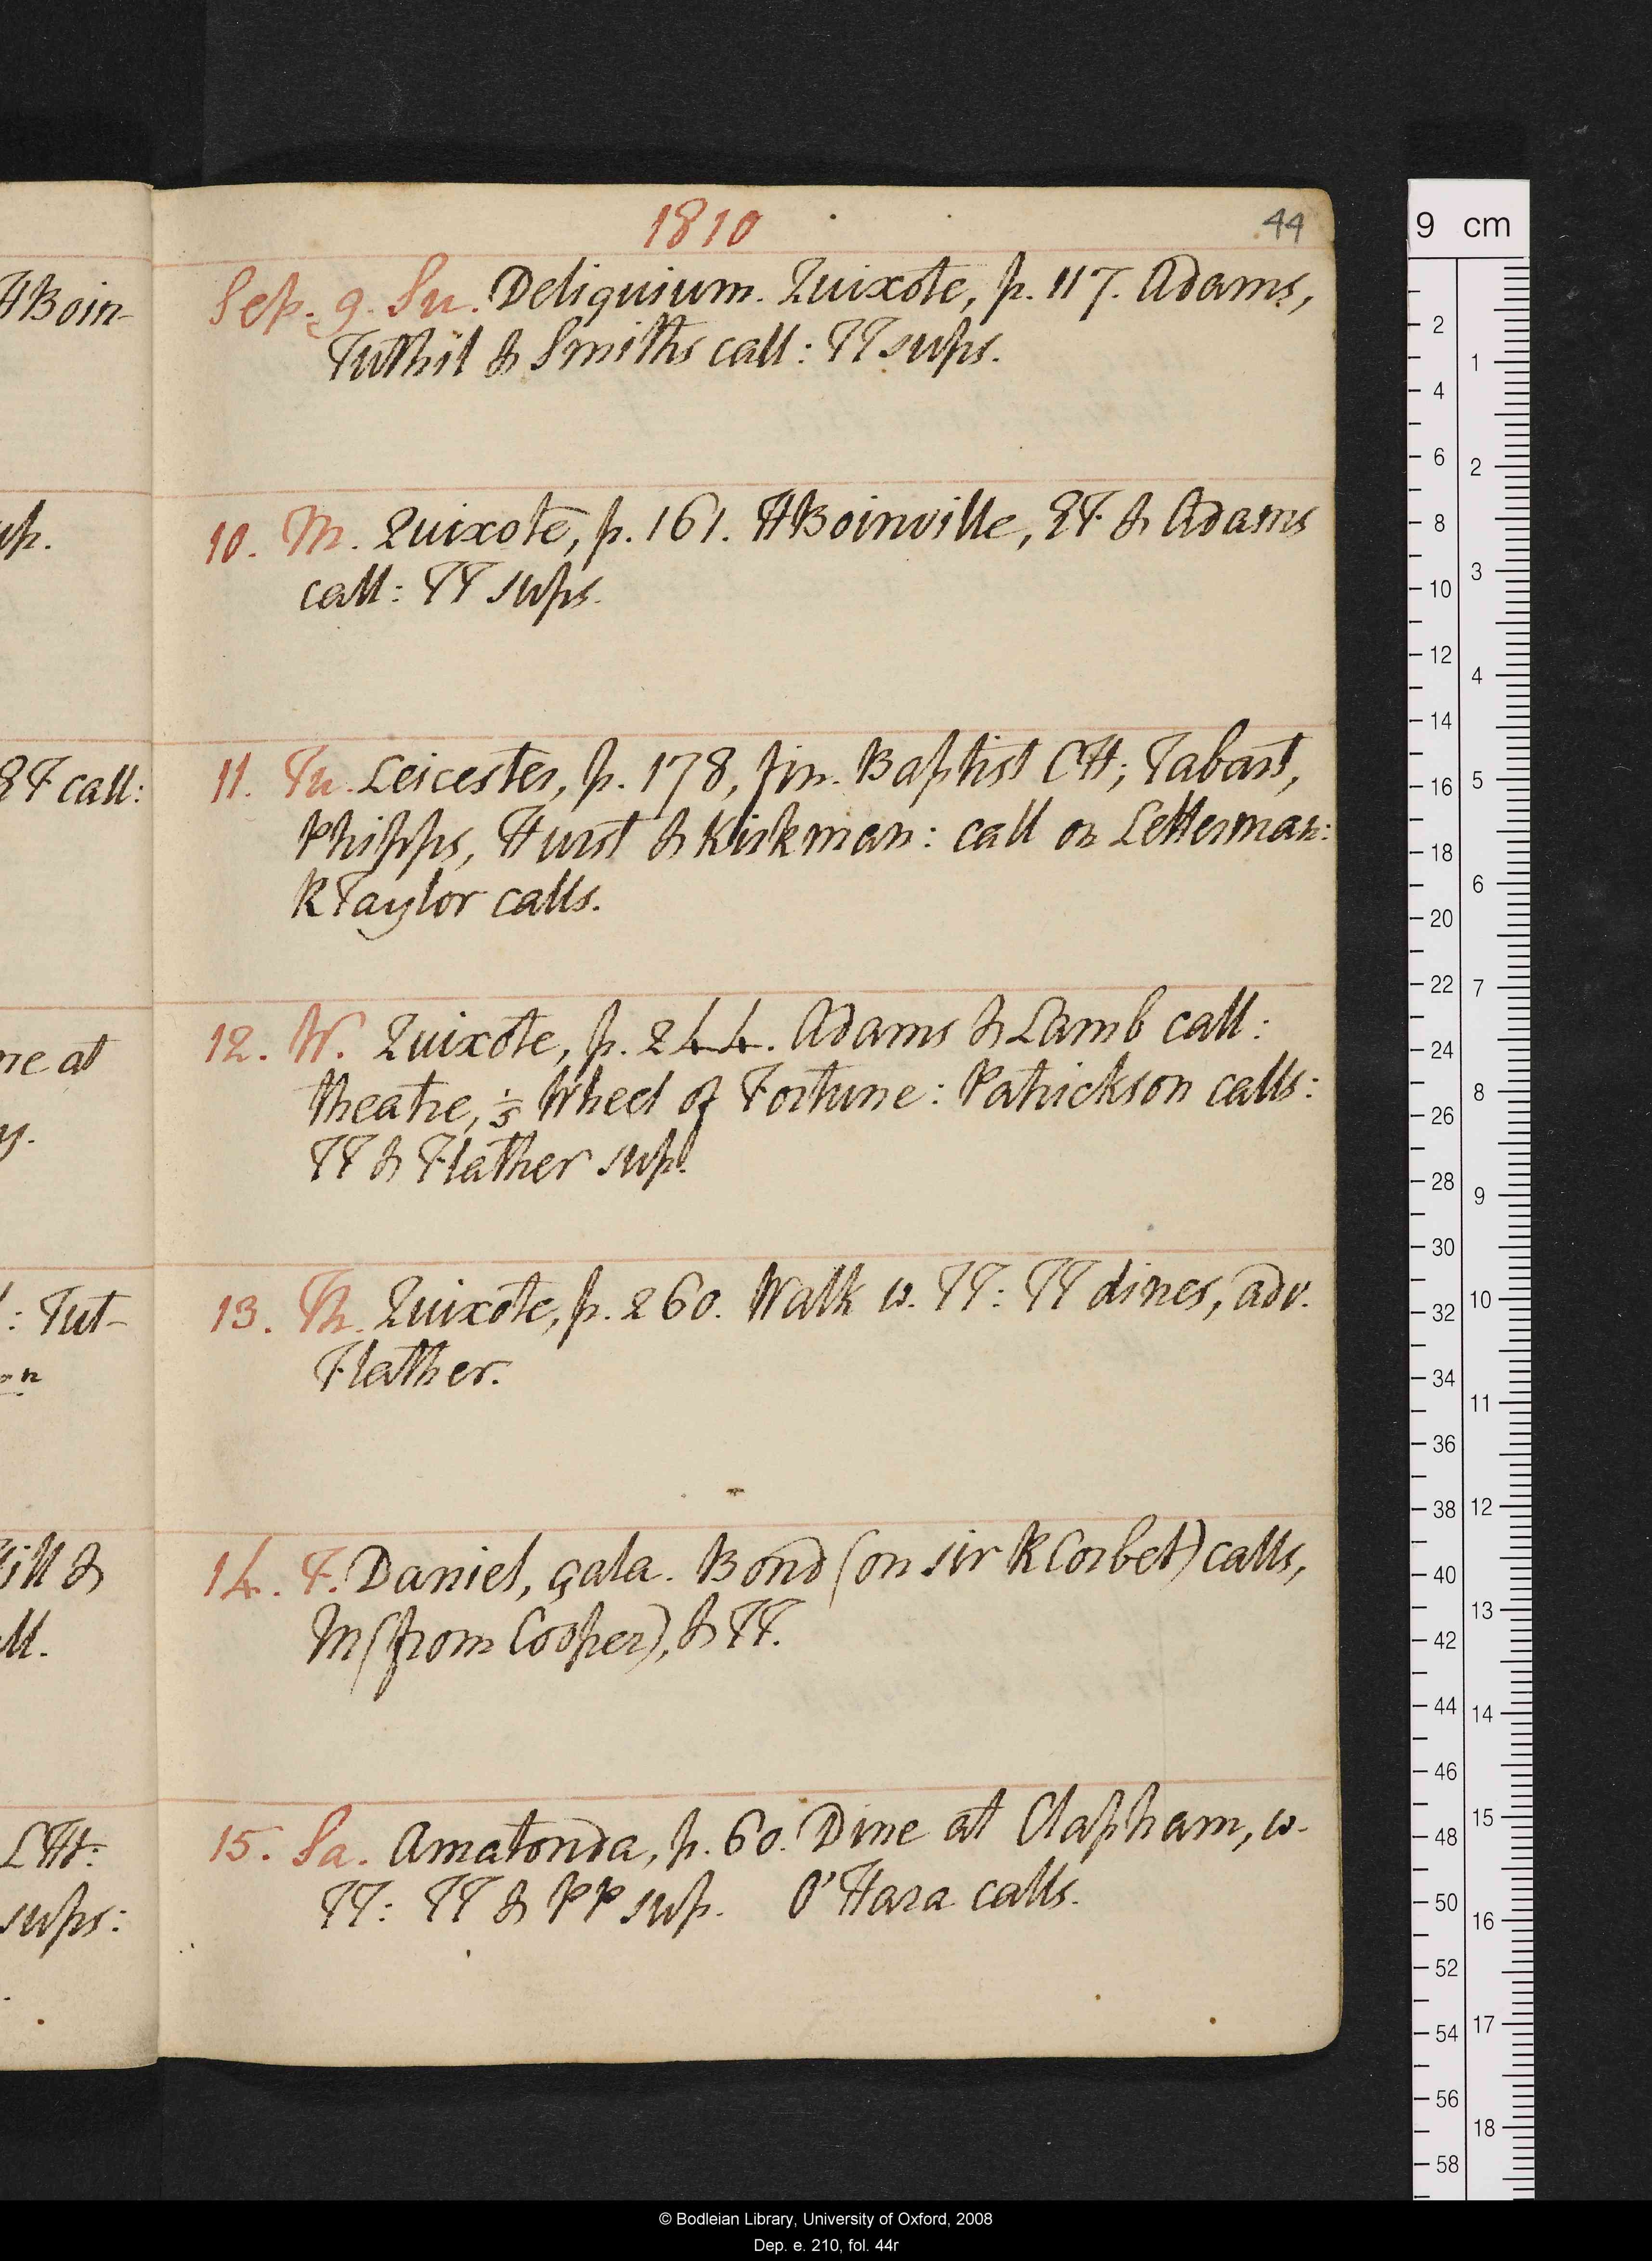 1810
44
Sep. 9. Su. Deliquium. Quixote, p. 117. Adams,
Tuthil & Smiths call: TT sups.
10. M. Quixote, p. 161. HBoinville, ET & Adams
call: TT sups.
11. Tu. Leicester, p. 178, fin. Baptist CH; Tabart,
Phipps, Hurst & Kirkman: call on Letterman:
RTaylor calls.
12. W. Quixote, p. 244. Adams & Lamb call:
theatre, ⅕ Wheel of Fortune: Patrickson calls:
TT & Flather sup.
13. Th. Quixote, p. 260. Walk w. TT: TT dines, adv.
Flather.
14. F. Daniel, gala. Bond (on sir RCorbet) calls,
M (from Cooper), & TT.
15. Sa. Amatonda, p. 60. Dine at Clapham, w.
TT: TT & PP sup. O'Hara calls.
HBoin-
up.
ET call:
ne at
y.
: Tut-
on
ill &
ll.
LH:
sups:
9 cm
2
4
6
8
10
12
14
16
18
20
22
24
26
28
30
32
34
36
38
40
42
44
46
48
50
52
54
56
58
1
2
3
4
5
6
7
8
9
10
11
12
13
14
15
16
17
18
© Bodleian Library, University of Oxford, 2008
Dep. e. 210, fol. 44r